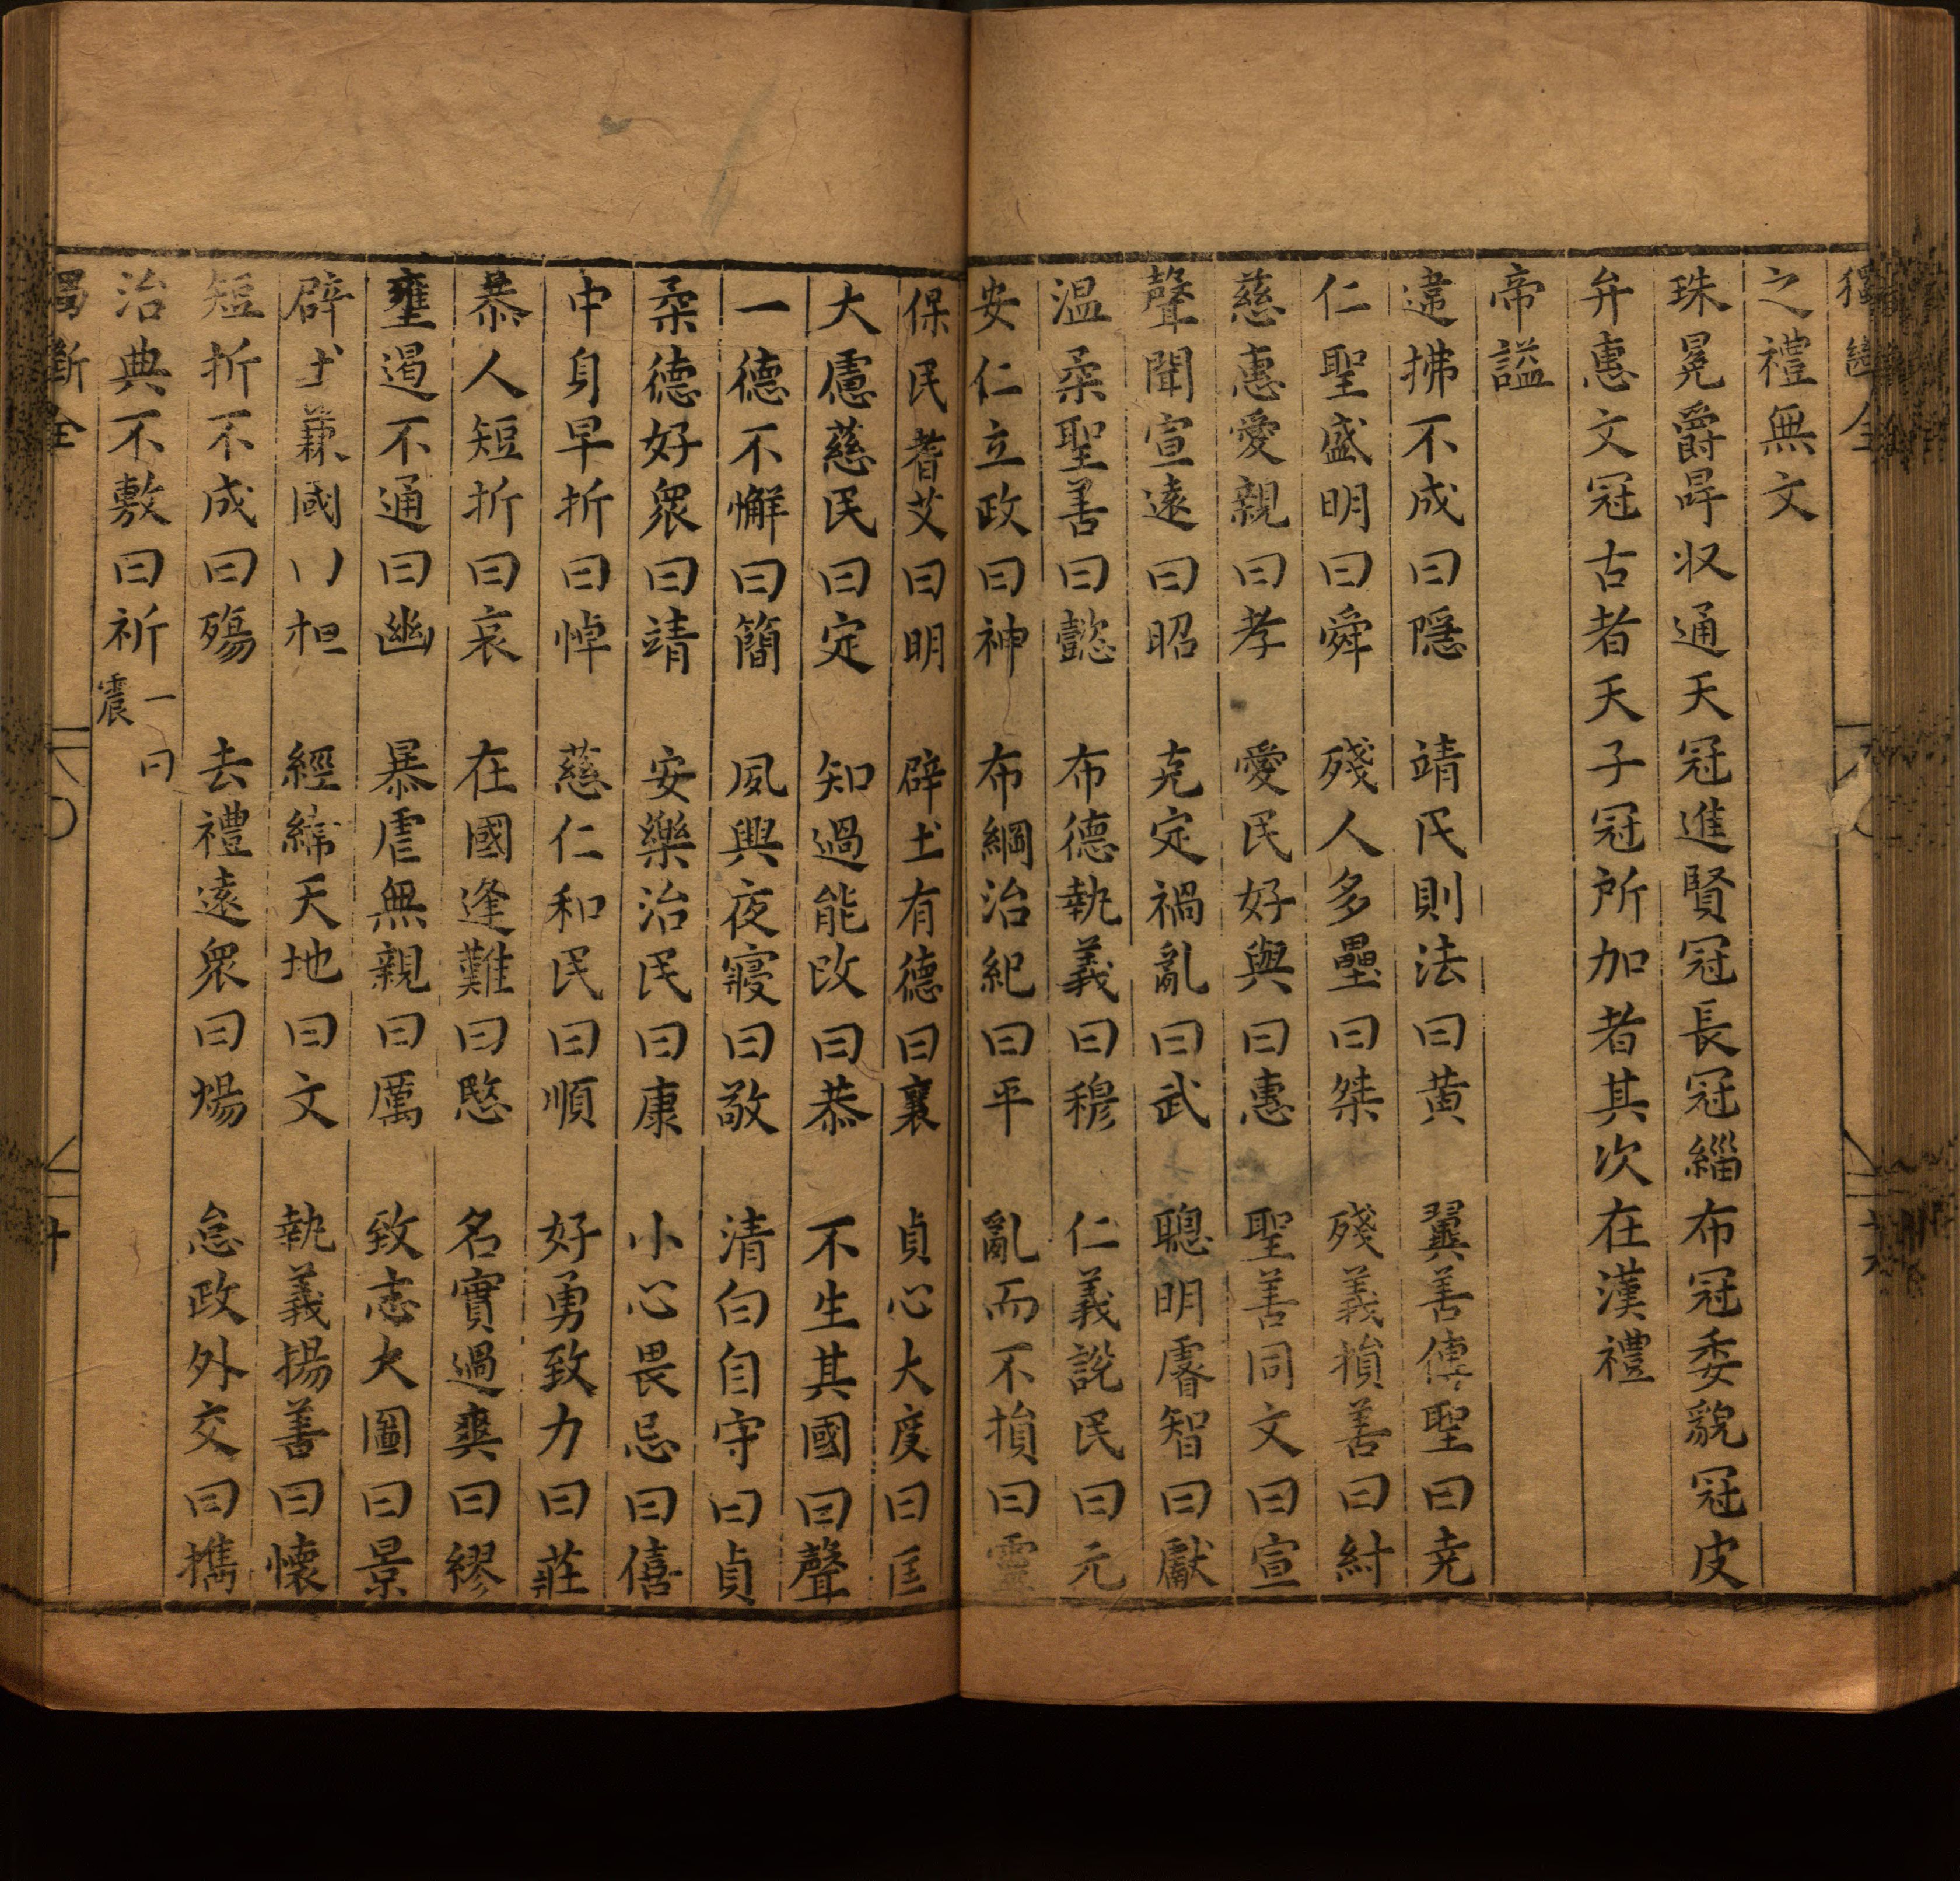 之禮無文
珠冕爵冔收通天冠進賢冠長冠緇布冠委貌冠皮
弁惠文冠古者天子冠所加者其次在漢禮
帝謚
違拂不成曰隱　靖民則法曰黃　翼善傳聖曰堯
仁聖盛明曰舜　殘人多壘曰桀　殘義損善曰紂
慈惠愛親曰孝　愛民好與曰惠　聖善同文曰宣
聲聞宣遠曰昭　克定禍亂曰武　聰明睿智曰獻
温柔聖善曰懿　布德執義曰穆　仁義説民曰元
安仁立政曰神　布綱治紀曰平　亂而不損曰靈
保民耆艾曰明　辟土有德曰襄　貞心大度曰匡
大慮慈民曰定　知過能改曰恭　不生其國曰聲
一德不懈曰簡　夙興夜寢曰敬　清白自守曰貞
柔德好衆曰靖　安樂治民曰康　小心畏忌曰僖
中身早折曰悼　慈仁和民曰順　好勇致力曰莊
恭人短折曰哀　在國逢難曰愍　名實過爽曰繆
壅遏不通曰幽　暴虐無親曰厲　致志大圖曰景
辟土兼國曰桓　經緯天地曰文　執義揚善曰懷
短折不成曰殤　去禮遠衆曰煬　怠政外交曰攜
治典不敷曰祈一曰震